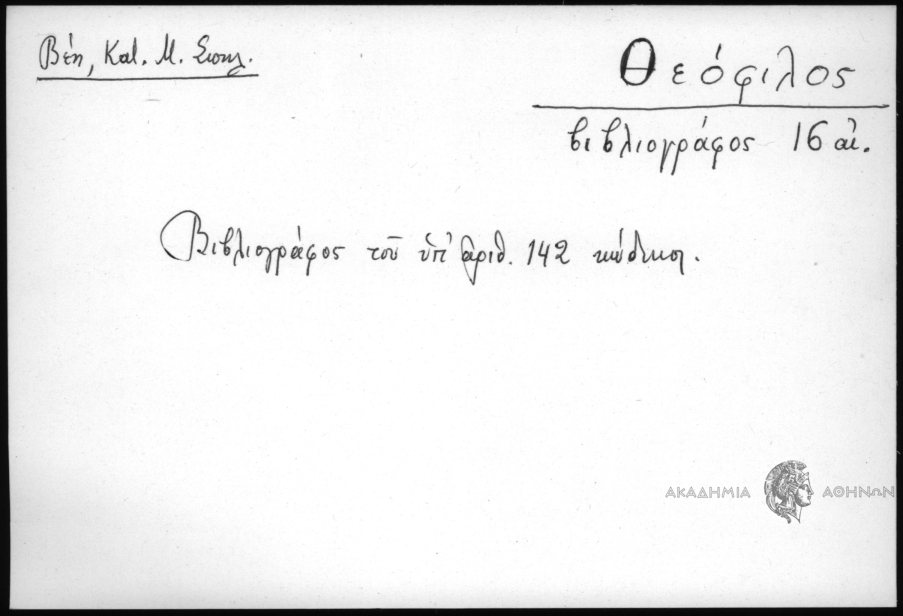 Βέη, Κατ. Μ. Σισιη.
Θεόφιλος
βιβλιογράφος 16 αἰ.
Βιβλιογράφος τοῦ ὑπ' ἀριθ. 142 κώδικος.
ΑΚΑΔΗΜΙΑ ΑΘΗΝΩΝ